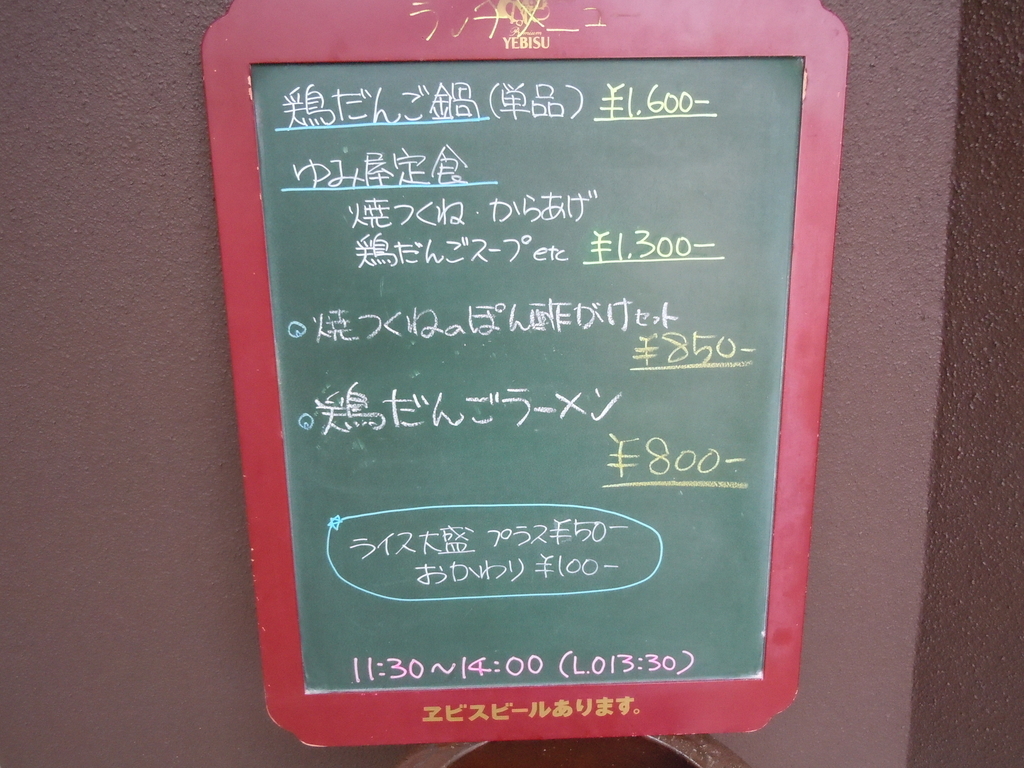 ランチメニュー
Premium
YEBISU
鶏だんご鍋(単品) ¥1.600-
ゆみ屋定食
焼つくね・からあげ
鶏だんごスープetc ¥1.300-
焼つくねのぽん酢がけセット
¥850-
鶏だんごラーメン
¥800-
ライス大盛 プラス¥50-
おかわり ¥100-
11:30~14:00 (L.O13:30)
ヱビスビールあります。